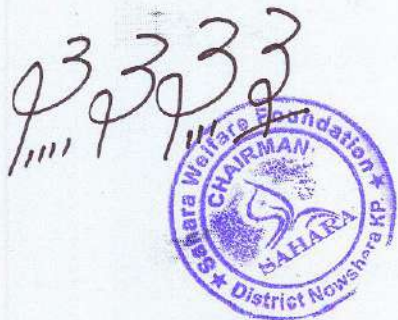 Sahara Welfare Foundation
CHAIRMAN
SAHARA
District Nowshera KP.